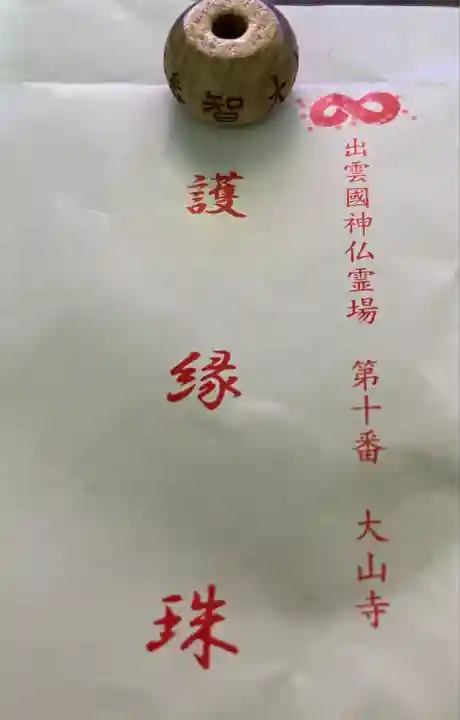 智
出雲國神仏霊場 第十番 大山寺
護縁珠